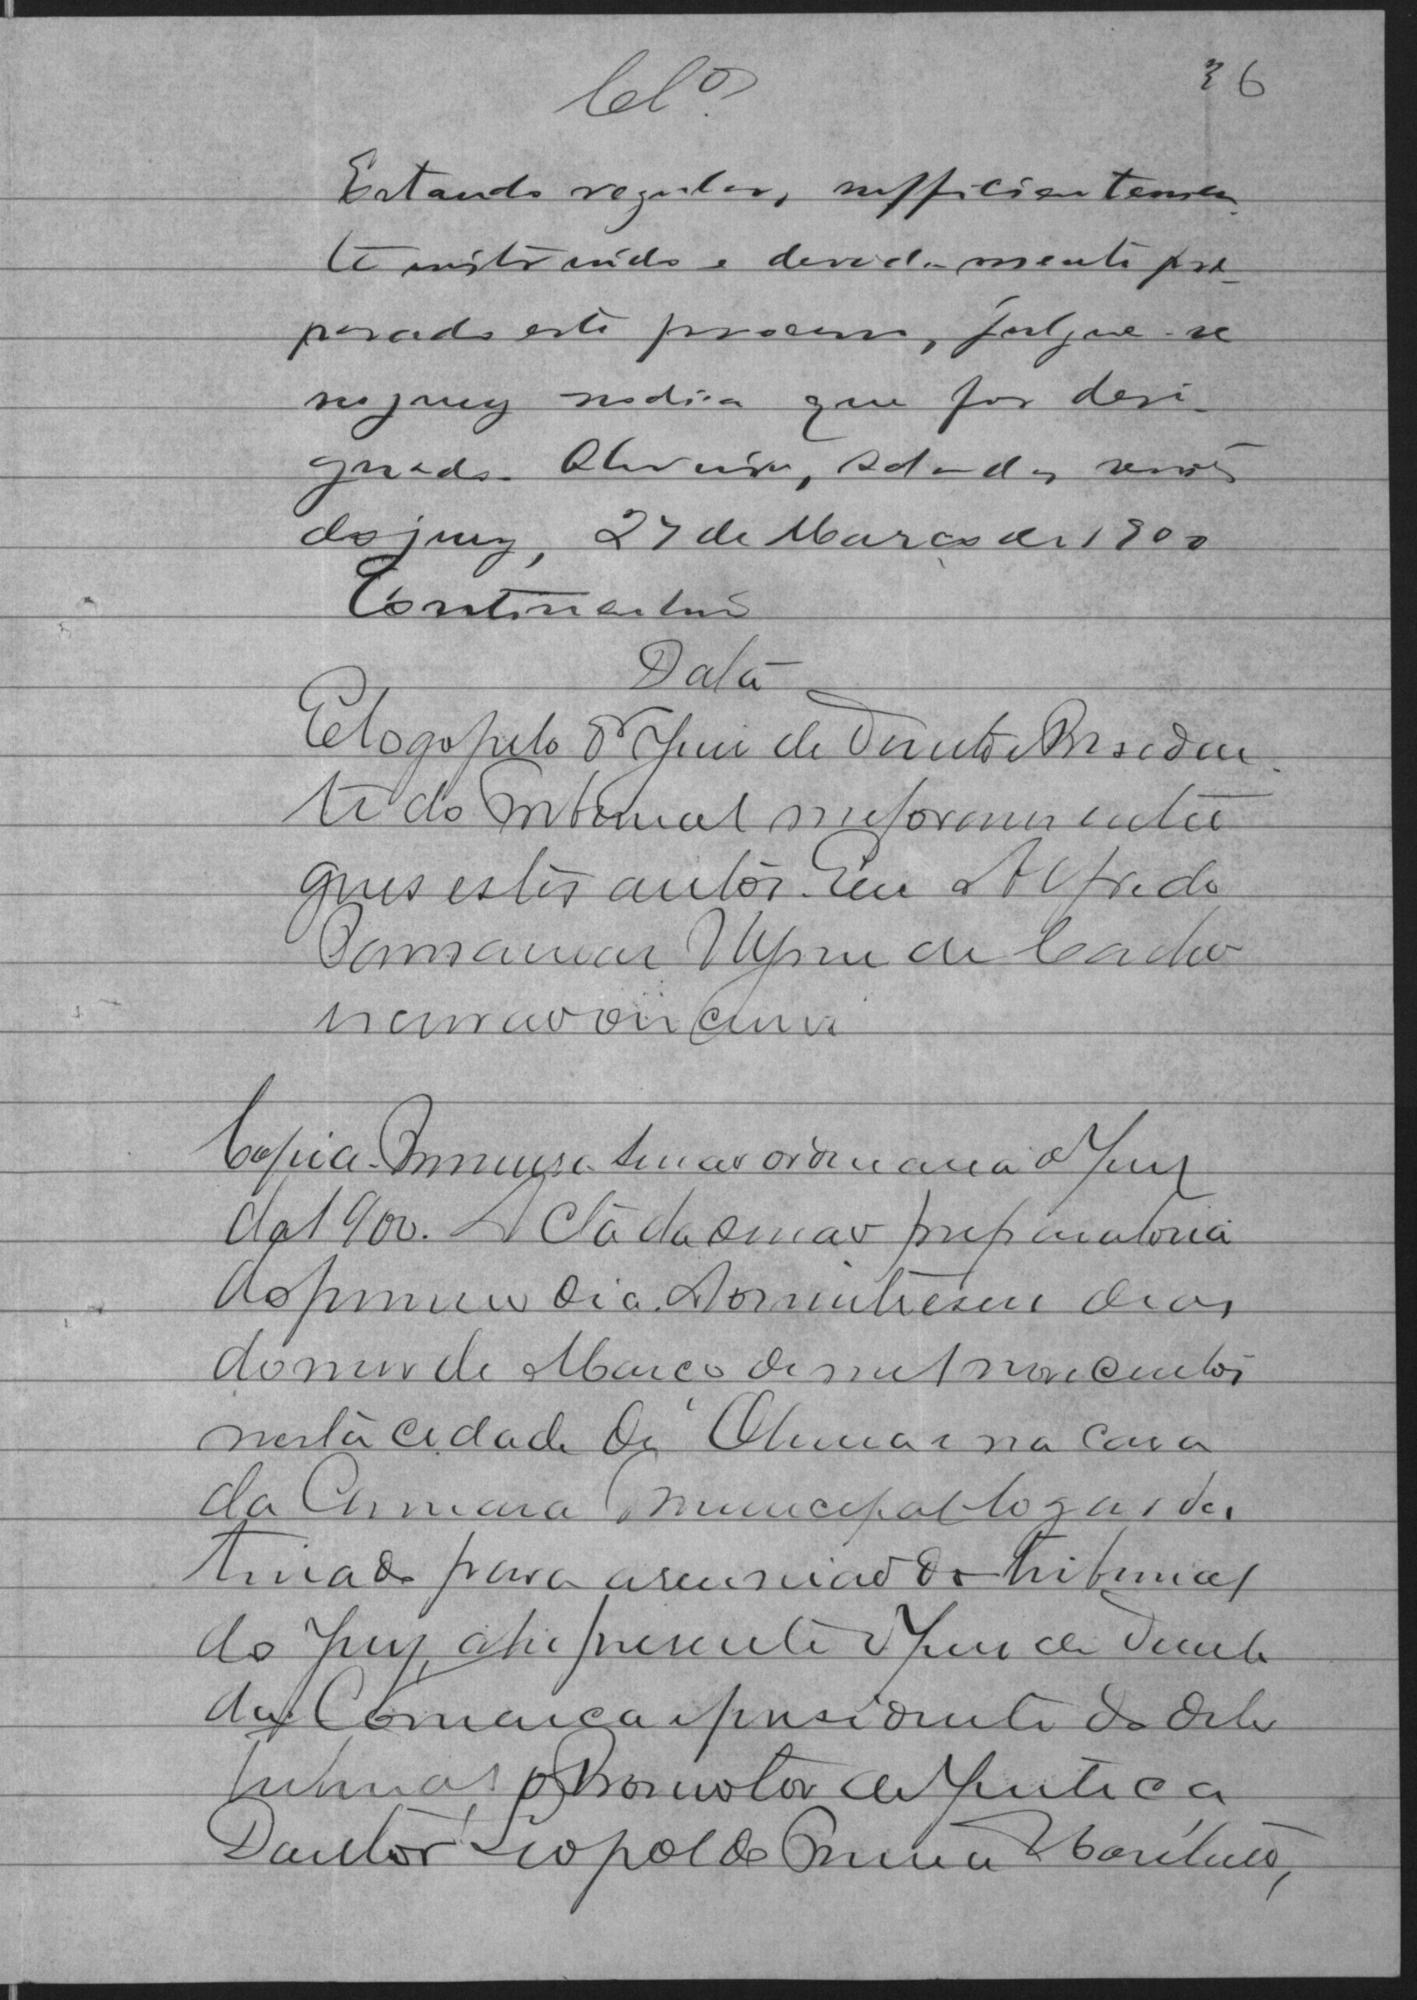 Clos.
36
Estando regular, sufficientemen
te instruido e devidamente pre-
parado este processo, julgue-se
no jury no dia que for desi-
gnado. Oliveira, sala das sessões
do jury, 27 de Março de 1900
Continentino
Data
E logo pelo Dr Juiz de Direito e Presiden
te do Tribunal me foram entre
gues estes autos. Eu Alfredo
de
escrivão
Copia. Primeira sessão ordinaria do Jury
de 1900. Acta da sessão preparatoria
do primeiro dia. Aos vinte e seis dias
do mes de Março de mil novecentos
nesta cidade de Oliveira na casa
da Camara Municipal logar des
tinado para a reunião do tribunal
do Jury, ahi presente o Juiz de Direito
da Comarca e presidente do dito
tribunal, o Promotor de Justiça
Doutor Leopoldo